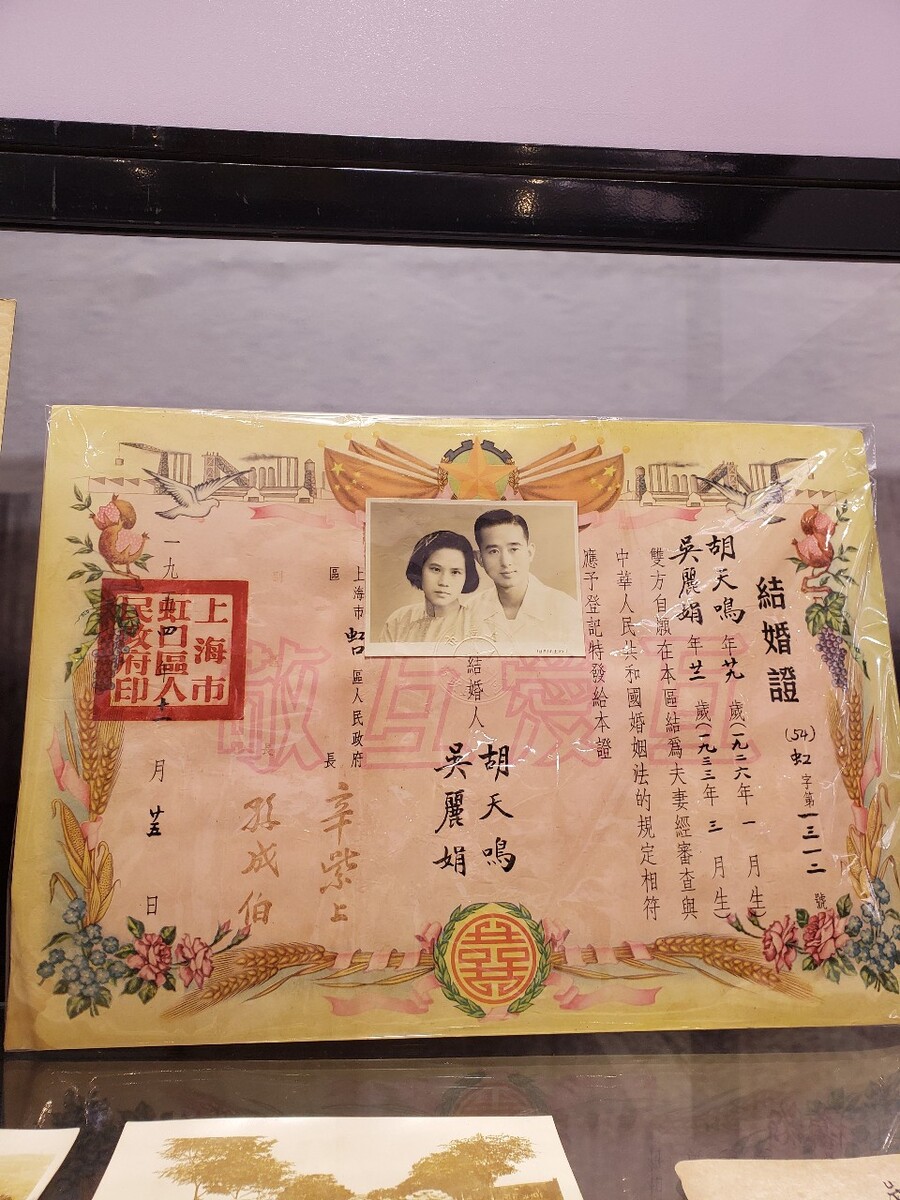 結婚證
(54)虹字第一三一二號
胡天鳴年廿九歲(一九二六年一月生)
吳麗娟年廿二歲(一九三三年三月生)
雙方自願在本區結爲夫妻經審查與
中華人民共和國婚姻法的規定相符
應予登記特發給本證
結婚人
胡天鳴
吳麗娟
上海市虹口區人民政府
區長
辛紫上
孫成伯
月廿五日
上海市
虹口區人
民政府印
互愛互敬